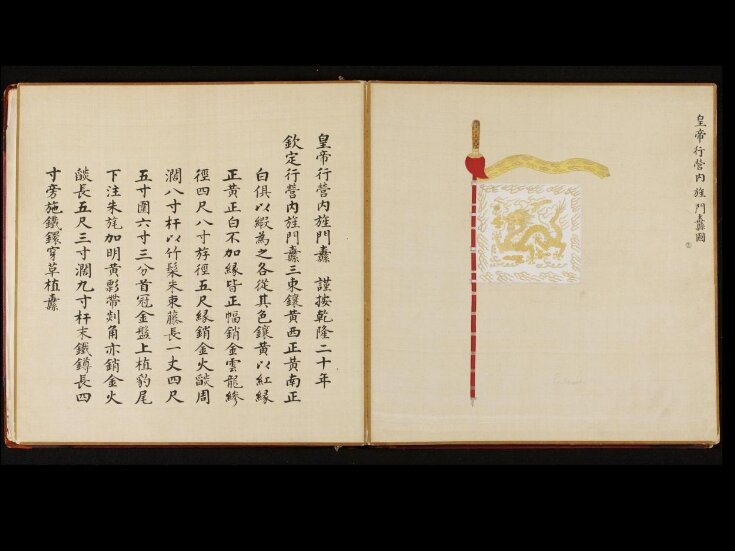 皇帝行營內旌門纛圖
皇帝行營內旌門纛　謹按乾隆二十年
欽定行營內旌門纛三東鑲黃西正黃南正
白俱以緞為之各從其色鑲黃以紅緣
正黃正白不加緣皆正幅銷金雲龍縿
徑四尺八寸斿徑五尺緣銷金火燄周
濶八寸杆以竹髹朱束藤長一丈四尺
五寸圍六寸三分首冠金盤上植豹尾
下注朱旄加明黃髟帶剡角亦銷金火
燄長五尺三寸濶九寸杆末鐵鐏長四
寸旁施鐵鐶穿草植纛